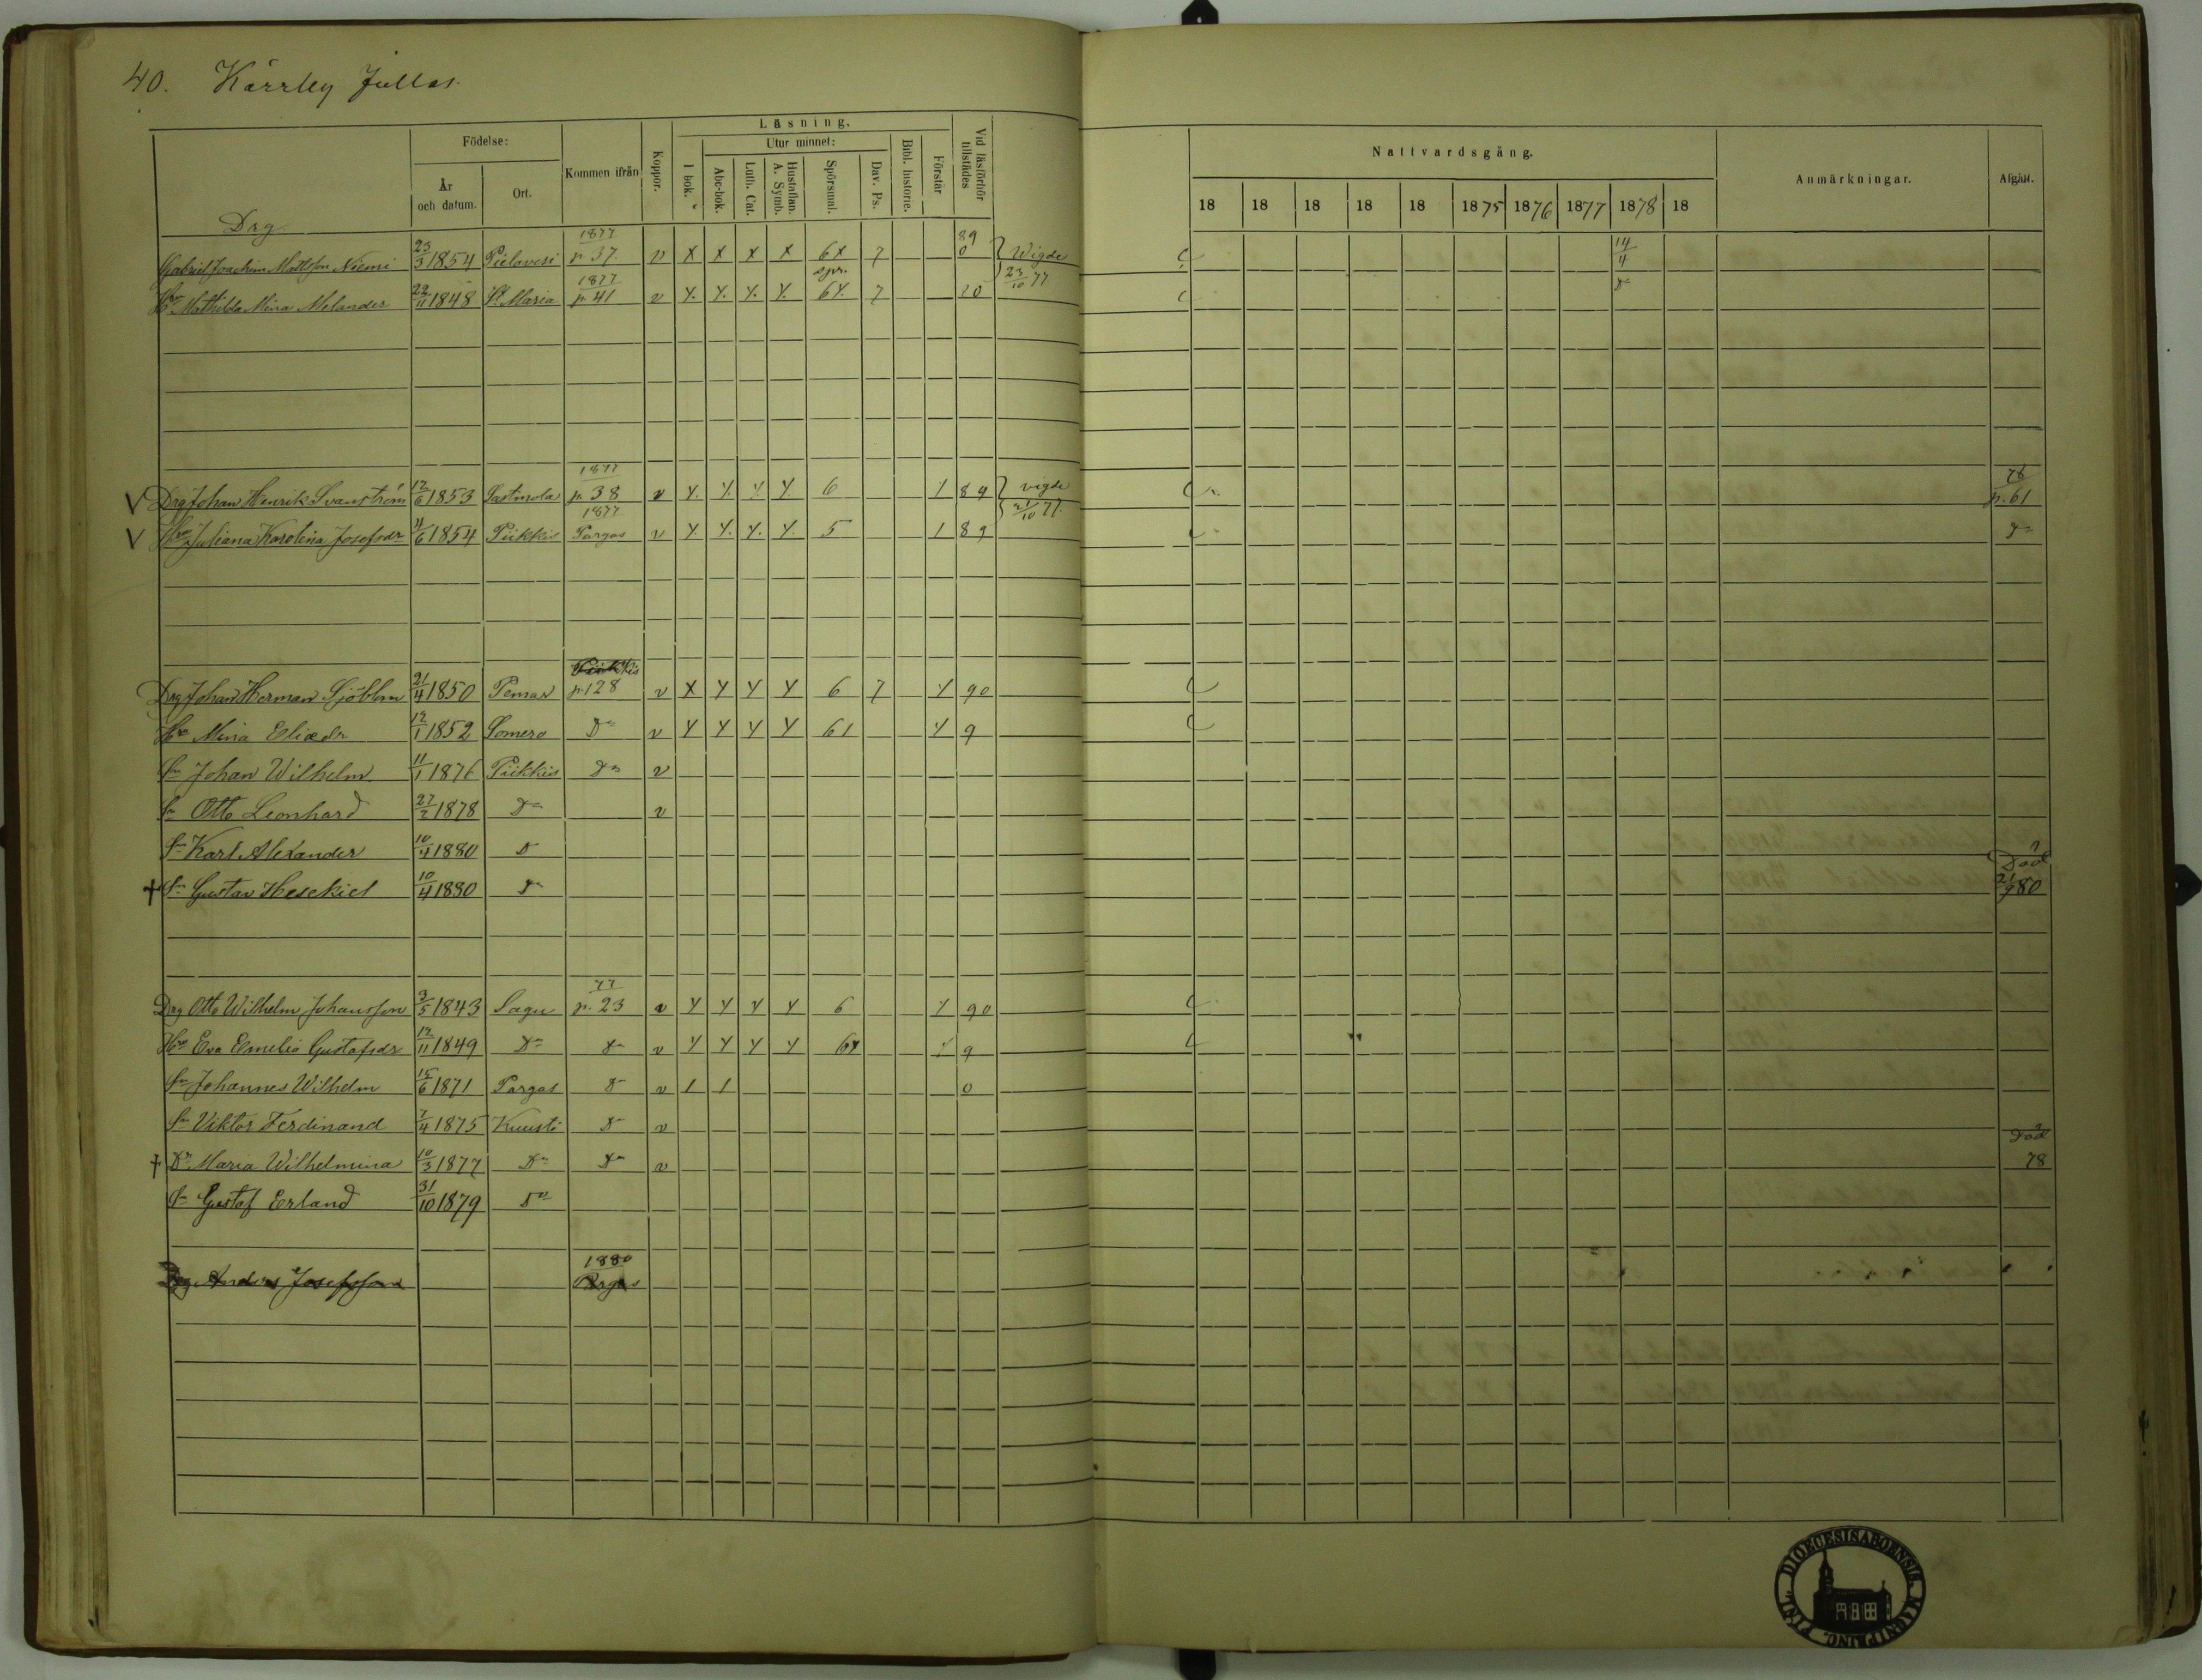 40. Kärrley Jullas.
Födelse: År och datum. Ort. Kommen ifrån Koppor. Läsning. I bok. Utur minnet: Abc-bok. Luth. Cat. Hustaflan. A. Symb. Spörsmal. Dav. Ps. Bibl. historie. Förstår Vid läsförhör tillstädes Nattvardsgång. Anmärkningar. Afgått.
18 18 18 18 18 1875 1876 1877 1878 18
Drg
Gabriel Joachim Mattsson Niemi 23/3 1854 Pielavesi 1877 p. 37 v x x x x 6x 7 89 0 Wigde 23/10 77 14/4
Hru Mathilda Mina Melander 22/11 1848 St. Maria 1877 p. 41 v y. y. y. y. spr. 6y. 7 20 Dn
V Drg Johan Henrik Svanström 12/6 1853 Sastmola 1877 p. 38 v y. y. y. y. 6 1 89 vigde 21/10 77. 78 p. 61
V Hru Juliana Karolina Josefsdr 4/6 1854 Piikkis 1877 Pargas v y. y. y. y. 5 1 89 Dn
Drg Johan Herman Sjöblom 21/4 1850 Pemar Piikkis p. 128 v x y y y 6 7 y 90
Hru Mina Eliædr 12/1 1852 Somero Dn v y y y y 61 y 9
Sn Johan Wilhelm 11/1 1876 Piikkis Dn v
Sn Otto Leonhard 27/2 1878 Dn v
Sn Karl Alexander 10/4 1880 D
† Sn Gustav Hesekiel 10/4 1880 Dn Död 21/9 80
Drg Otto Wilhelm Johansson 3/5 1843 Sagu 77 p. 23 v y y y y 6 y 90
Hru Eva Emelia Gustafsdr 12/11 1849 Dn Dn v y y y y 6y y 9
Sn Johannes Wilhelm 15/6 1871 Pargas Dn v 1 1 0
Sn Viktor Ferdinand 7/4 1875 Kuustö Dn v
† Dr Maria Wilhelmina 10/3 1877 Dn Dn v Död 78
Sn Gustaf Erland 31/10 1879 Dn
Drg Anders Josefsson 1880 Pargas
DIOECESIS ABOENSIS. MAGNI PRINC. FINL.